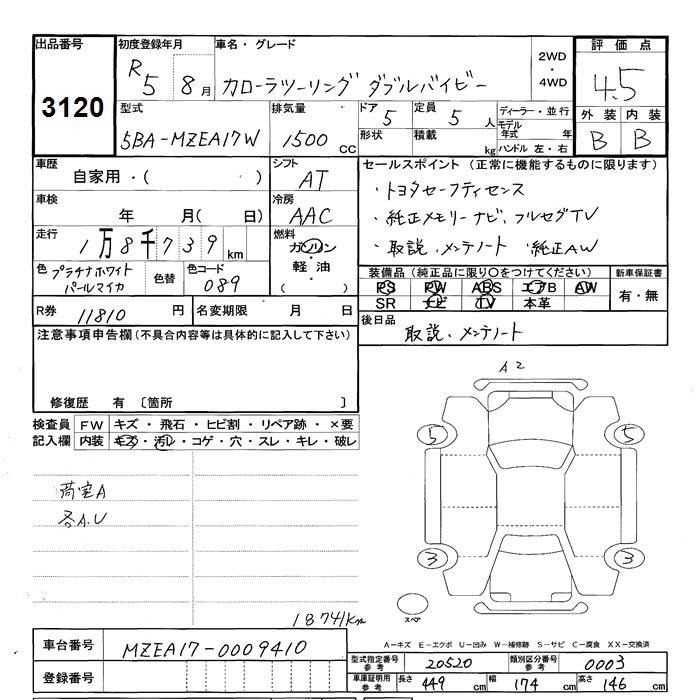 出品番号
3120
初度登録年月
R5 8月
車名・グレード
カローラツーリング ダブルバイビー
2WD
・
4WD
評価点
4.5
型式
5BA-MZEA17W
排気量
1500 CC
ドア
5
定員
5 人
形状
積載
kg
ディーラー・並行
モデル年式 年
ハンドル 左・右
外装 内装
B B
車歴
自家用・( )
シフト
AT
セールスポイント (正常に機能するものに限ります)
・トヨタセーフティセンス
・純正メモリーナビ、フルセグTV
・取説、メンテノート ・純正AW
車検
年 月( 日)
冷房
AAC
走行
1万8千739km
燃料
ガソリン
・軽油・
( )
色
プラチナホワイト
パールマイカ
色替
色コード
089
装備品 (純正品に限り○をつけてください)
PS PW ABS エアB AW
SR ナビ TV 本革
新車保証書
有・無
R券
11810 円
名変期限 月 日
後日品
取説、メンテノート
注意事項申告欄 (不具合内容等は具体的に記入して下さい)
修復歴 有 〔箇所 〕
検査員
記入欄
FW キズ・飛石・ヒビ割・リペア跡・×要
内装 キズ・汚レ・コゲ・穴・スレ・キレ・破レ
荷室A
各A.U
18741km
A2
5 5
3 3
スペア
A-キズ E-エクボ U-凹み W-補修跡 S-サビ C-腐食 XX-交換済
車台番号
MZEA17-0009410
登録番号
型式指定番号
参考
20520
類別区分番号
参考
0003
車庫証明用
参考
長さ 449 cm 幅 174 cm 高さ 146 cm